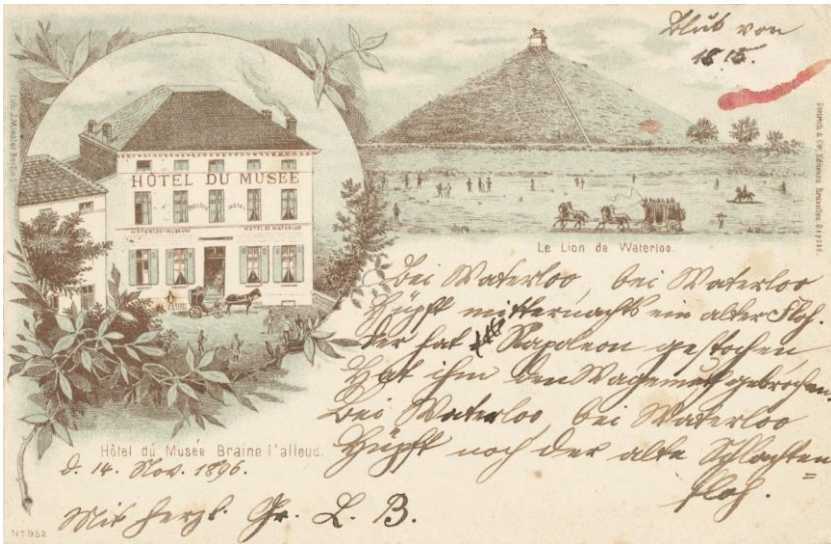 Blut von
1815.
HÔTEL DU MUSÉE
HÔTEL DE WATERLOO
Le Lion de Waterloo.
Bei Waterloo, bei Waterloo
Hüpft mitternachts ein alter Floh.
Der hat Napoleon gestochen,
Hat ihm den Wagemuth gebrochen.
Bei Waterloo, bei Waterloo
Hüpft noch der alte Schlachten=
floh.
Hôtel du Musée Braine l'alleud.
d. 14. Nov. 1896.
Mit herzl. Gr. L. B.
Nº 952